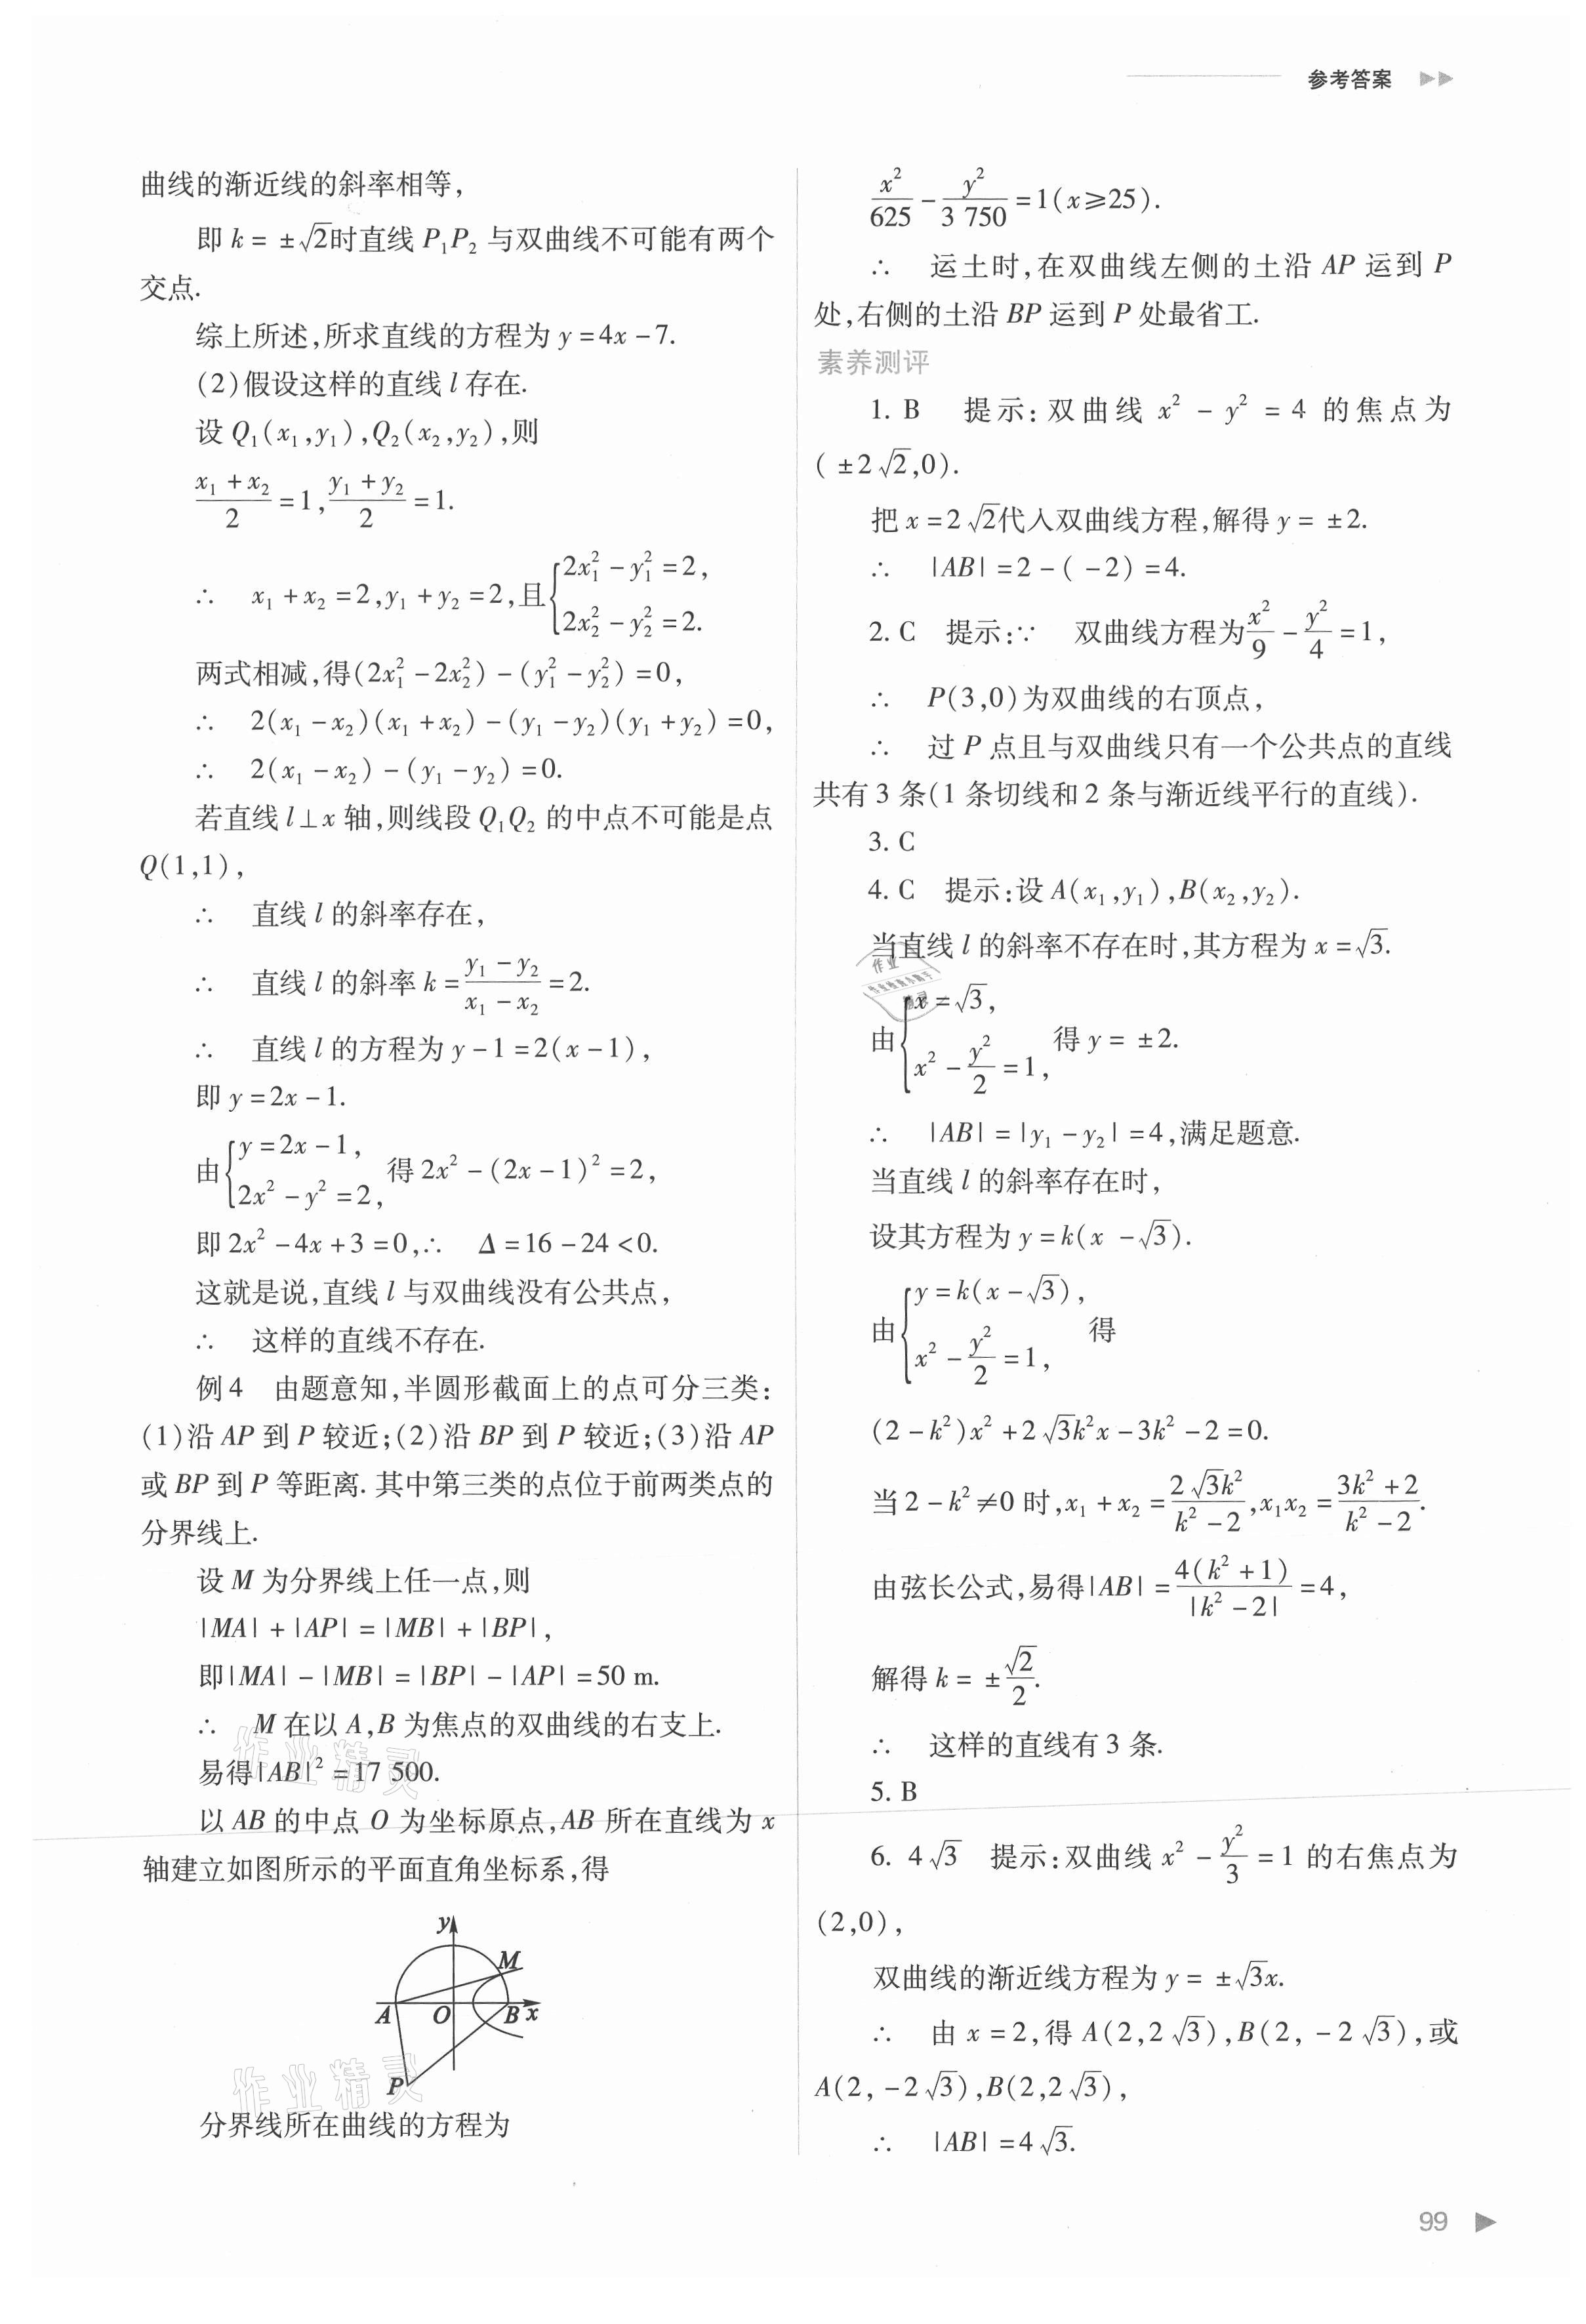 参考答案
曲线的渐近线的斜率相等,
即 k = ±√2时直线 P₁P₂ 与双曲线不可能有两个
交点.
综上所述,所求直线的方程为 y=4x-7.
(2)假设这样的直线 l 存在.
设 Q₁(x₁,y₁),Q₂(x₂,y₂),则
(x₁+x₂)/2=1,(y₁+y₂)/2=1.
∴ x₁+x₂=2,y₁+y₂=2,且{2x₁²-y₁²=2, 2x₂²-y₂²=2.
两式相减,得(2x₁²-2x₂²)-(y₁²-y₂²)=0,
∴ 2(x₁-x₂)(x₁+x₂)-(y₁-y₂)(y₁+y₂)=0,
∴ 2(x₁-x₂)-(y₁-y₂)=0.
若直线 l⊥x 轴,则线段 Q₁Q₂ 的中点不可能是点
Q(1,1),
∴ 直线 l 的斜率存在,
∴ 直线 l 的斜率 k=(y₁-y₂)/(x₁-x₂)=2.
∴ 直线 l 的方程为 y-1=2(x-1),
即 y=2x-1.
由{y=2x-1, 2x²-y²=2, 得 2x²-(2x-1)²=2,
即 2x²-4x+3=0,∴ Δ=16-24<0.
这就是说,直线 l 与双曲线没有公共点,
∴ 这样的直线不存在.
例4 由题意知,半圆形截面上的点可分三类:
(1)沿 AP 到 P 较近;(2)沿 BP 到 P 较近;(3)沿 AP
或 BP 到 P 等距离. 其中第三类的点位于前两类点的
分界线上.
设 M 为分界线上任一点,则
|MA|+|AP|=|MB|+|BP|,
即|MA|-|MB|=|BP|-|AP|=50 m.
∴ M 在以 A,B 为焦点的双曲线的右支上.
易得|AB|²=17 500.
以 AB 的中点 O 为坐标原点,AB 所在直线为 x
轴建立如图所示的平面直角坐标系,得
y
M
A O B x
P
分界线所在曲线的方程为
x²/625-y²/3 750=1(x≥25).
∴ 运土时,在双曲线左侧的土沿 AP 运到 P
处,右侧的土沿 BP 运到 P 处最省工.
素养测评
1. B 提示:双曲线 x²-y²=4 的焦点为
(±2√2,0).
把 x=2√2代入双曲线方程,解得 y=±2.
∴ |AB|=2-(-2)=4.
2. C 提示:∵ 双曲线方程为x²/9-y²/4=1,
∴ P(3,0)为双曲线的右顶点,
∴ 过 P 点且与双曲线只有一个公共点的直线
共有 3 条(1 条切线和 2 条与渐近线平行的直线).
3. C
4. C 提示:设 A(x₁,y₁),B(x₂,y₂).
当直线 l 的斜率不存在时,其方程为 x=√3.
由{x=√3, x²-y²/2=1, 得 y=±2.
∴ |AB|=|y₁-y₂|=4,满足题意.
当直线 l 的斜率存在时,
设其方程为 y=k(x-√3).
由{y=k(x-√3), x²-y²/2=1, 得
(2-k²)x²+2√3k²x-3k²-2=0.
当 2-k²≠0 时,x₁+x₂=2√3k²/(k²-2),x₁x₂=(3k²+2)/(k²-2).
由弦长公式,易得|AB|=4(k²+1)/|k²-2|=4,
解得 k=±√2/2.
∴ 这样的直线有 3 条.
5. B
6. 4√3 提示:双曲线 x²-y²/3=1 的右焦点为
(2,0),
双曲线的渐近线方程为 y=±√3x.
∴ 由 x=2,得 A(2,2√3),B(2,-2√3),或
A(2,-2√3),B(2,2√3),
∴ |AB|=4√3.
作业精灵
作业精灵
99